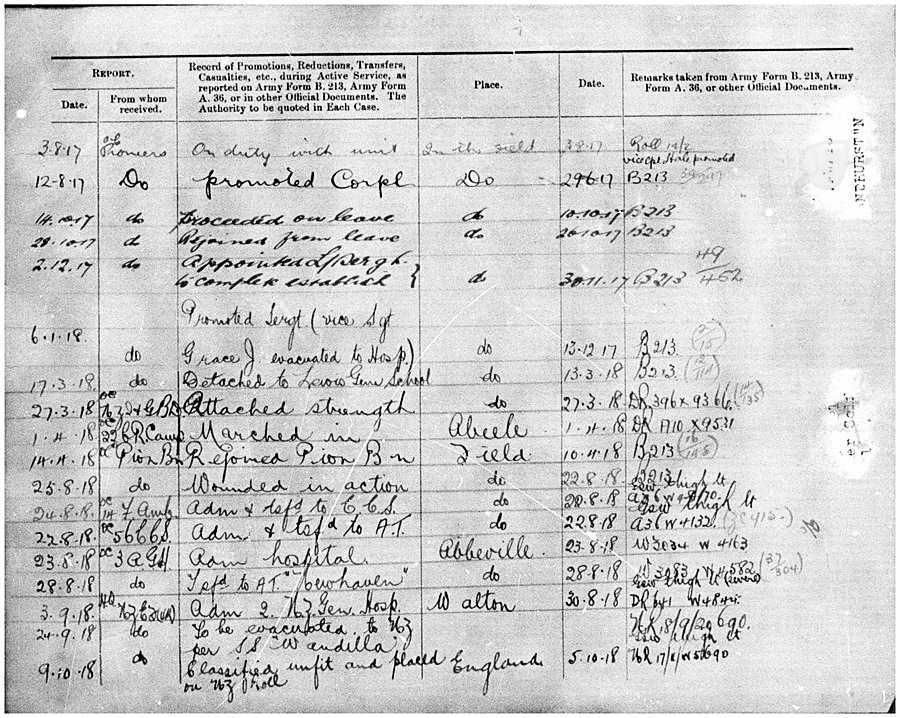 REPORT.
Record of Promotions, Reductions, Transfers,
Casualties, etc., during Active Service, as
reported on Army Form B. 213, Army Form
A. 36, or in other Official Documents. The
Authority to be quoted in Each Case.
Place.
Date.
Remarks taken from Army Form B. 213, Army
Form A. 36, or other Official Documents.
Date.
From whom
received.
3.8.17 Pioneers On duty with unit In the Field 3.8.17 Roll
vice Cpl promoted
12.8.17 Do promoted Corpl Do 29.6.17 B213
14.10.17 do proceeded on leave do 10.10.17 B213
28.10.17 d Rejoined from leave do B213
2.12.17 do Appointed L/Sergt. 49
to complete establish } do 30.11.17 B213 462
6.1.18. Promoted Sergt. (vice Sgt
do Grace J. evacuated to Hosp.) do 13.12.17 B213.
17.3.18. do Detached to School do 13.3.18 B213.
27.3.18 Attached strength do 27.3.18 DR 396 x 9366.
1.4.18 Marched in Abeele 1.4.18 DR A10 x 9531
14.4.18 OC Pion Bn Rejoined Pion Bn Field. 10.4.18 B213
25.8.18 do Wounded in action do 22.8.18 B213
Gsw thigh lt
24.8.18. OC 14 F Amb Adm & tsfd to C.C.S. do 22.8.18 A36
Gsw thigh lt
22.8.18 OC 56 CCS. Adm & tsfd to A.T. do 22.8.18 A36 W4132.
23.8.18 OC 3 A.G.H. Adm hospital. Abbeville. 23.8.18 W3034 W4163
28.8.18 do Tsfd to A.T. "Newhaven" do 28.8.18 W3083 W4582
Gsw thigh lt (severe)
3.9.18. HQ NZEF(UK) Adm 2 NZ Gen. Hosp. Walton 30.8.18 DR641
24.9.18 do To be evacuated to NZ
per SS "Wandilla" thigh lt
9.10.18 do Classified unfit and placed England 5.10.18
on NZ Roll